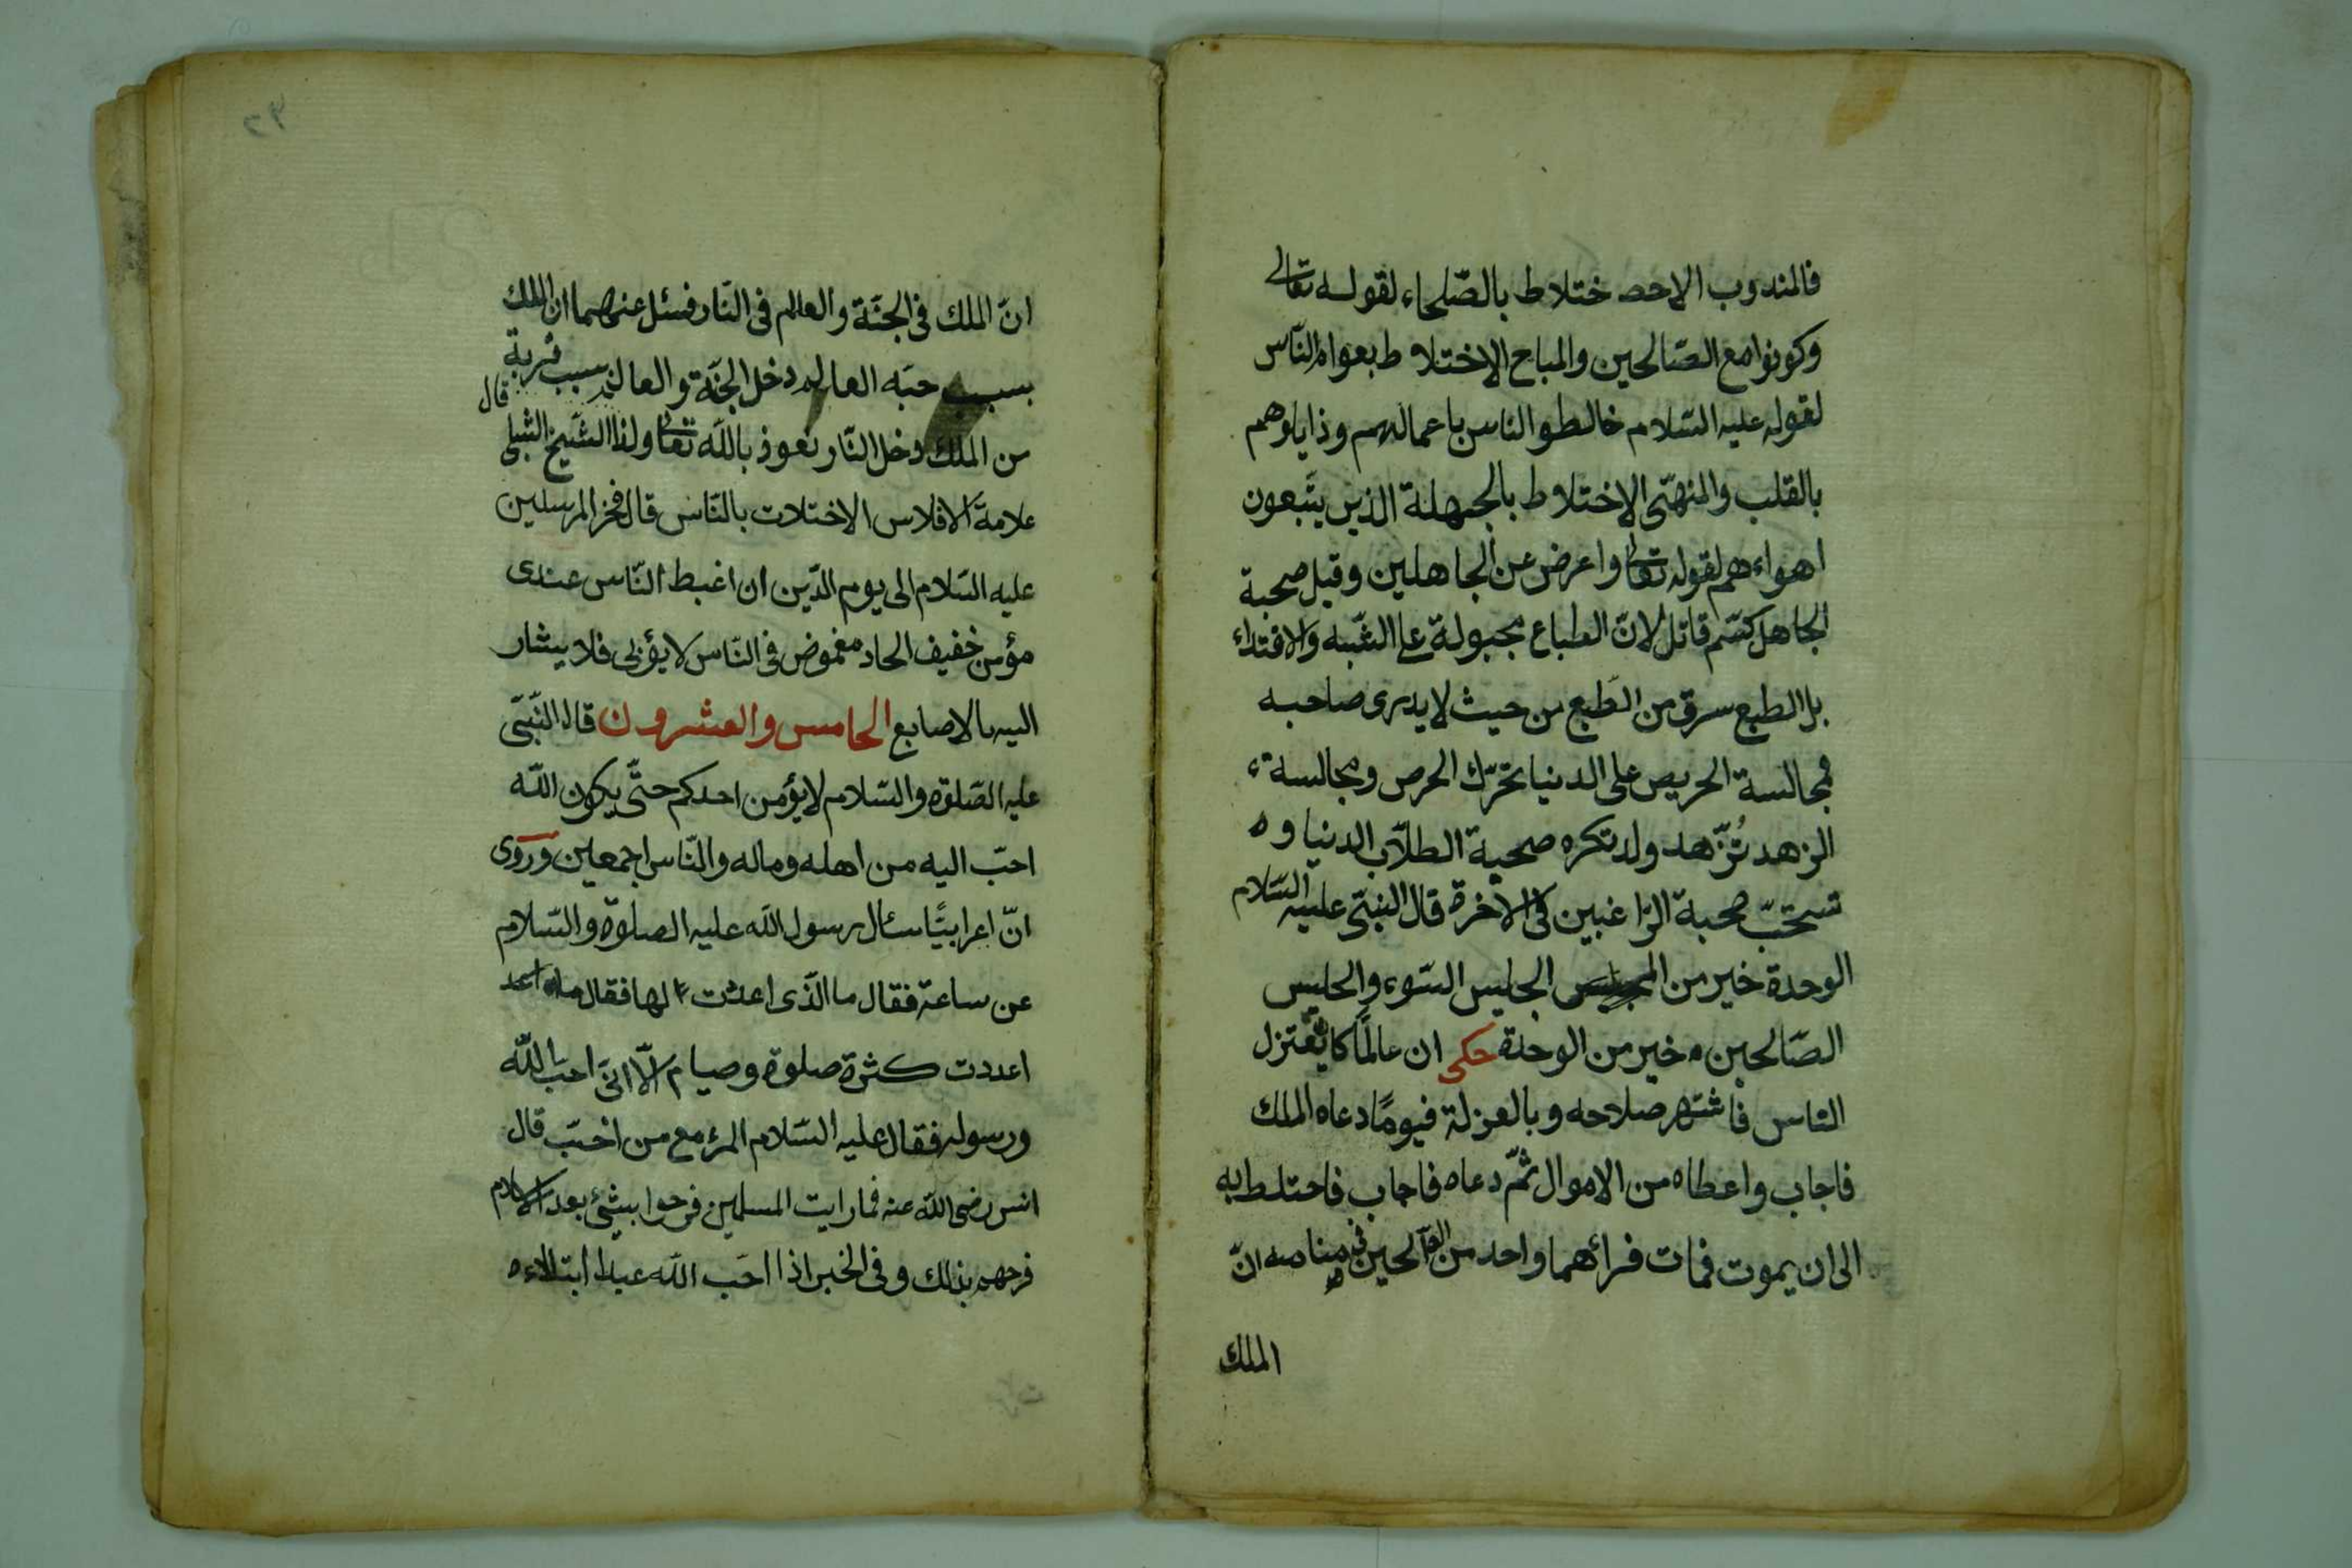 فالمندوب الاحص ختلاط بالصّلحاء لقوله تعالى
وكونوا مع الصّالحين والمباح الإختلاط بعوام النّاس
لقوله عليه السّلام خالطوا الناس باعمالهم وذايلوهم
بالقلب والمنهىّ الإختلاط بالجهلة الذين يتّبعون
اهواءهم لقوله تعالى واعرض عن الجاهلين وقيل صحبة
الجاهل كسّم قاتل لانّ الطباع مجبولة على الشّبه والاقتداء
بل الطبع سرق من الطبع من حيث لا يدرى صاحبه
فمجالسة الحريص على الدنيا تحرّك الحرص ومجالسة
الزهد تُزّهد ولد تكره صحبة الطلّاب الدنيا و
تستحبّ صحبة الرّاغبين فى الآخرة قال النبىّ عليه السّلام
الوحدة خير من الجليس السّوء والجليس
الصّالحين خير من الوحدة حكى ان عالمًا كان يعتزل
النّاس فاشتهر صلاحه وبالعزلة فيومًا دعاه الملك
فاجاب واعطاه من الاموال ثمّ دعاه فاجاب فاختلط به
الى ان يموت فمات فرأهما واحد من الصّالحين فى منامه انّ
الملك
٩٢
انّ الملك فى الجنّة والعالم فى النّار فسئل عنهما ان الملك
بسبب حبّه العالم دخل الجنّة والعالم بسبب قربة
من الملك دخل النّار نعوذ بالله تعالى ولذا قال الشّيخ الشبلى
علامة الافلاس الاختلات بالنّاس قال فخر المرسلين
عليه السّلام الى يوم الدّين ان اغبط النّاس عندى
مؤمن خفيف الحاد مغموض فى النّاس لا يؤبى فلا يشار
اليه بالاصابع الخامس والعشرون قال النّبىّ
عليه الصّلوة والسّلام لا يؤمن احدكم حتّى يكون الله
احبّ اليه من اهله وماله والنّاس اجمعين وروى
انّ اعرابيًّا سئال رسول الله عليه الصلوة والسّلام
عن ساعة فقال ما الذّى اعددت لها فقال ما
اعددت كثرة صلوة وصيام الّا انّى احبّ الله
ورسوله فقال عليه السّلام المرء مع من احبّ قال
انس رضى الله عنه فما رايت المسلمين فرحوا بشئ بعد الاسلام
فرحهم بذلك وفى الخبر اذا احبّ الله عبدا ابتلاءه